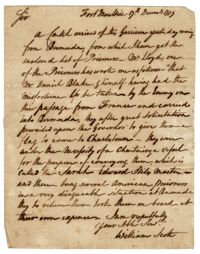 Sir Fort Moultrie. 17 Decem.r 1779
A Cartel arived at this Garrison yesterday evening
from Bermuda, from which I have got the
inclosed list of Prisoners. Mr. Lloyd, one
of the Prisoners has wrote me as follows that
Mr. Daniel Blake & himself having had the
misfortune to be taken by the Enemy on
their passage from France and carried
into Bermuda, they after great solicitation
prevailed upon the Governor to give them a
flag to come to Charlestown - they were
under the necessity of a Chartering a vessel
for the purpose of conveying them, which is
called the Sarah Edward Stiles Master -
and there being several American prisoners
in a very disagreeable situation at Bermuda
they to relieve them took them on board at
their own expence. I am respectfully
Your Obt. Serv.t
William Scott